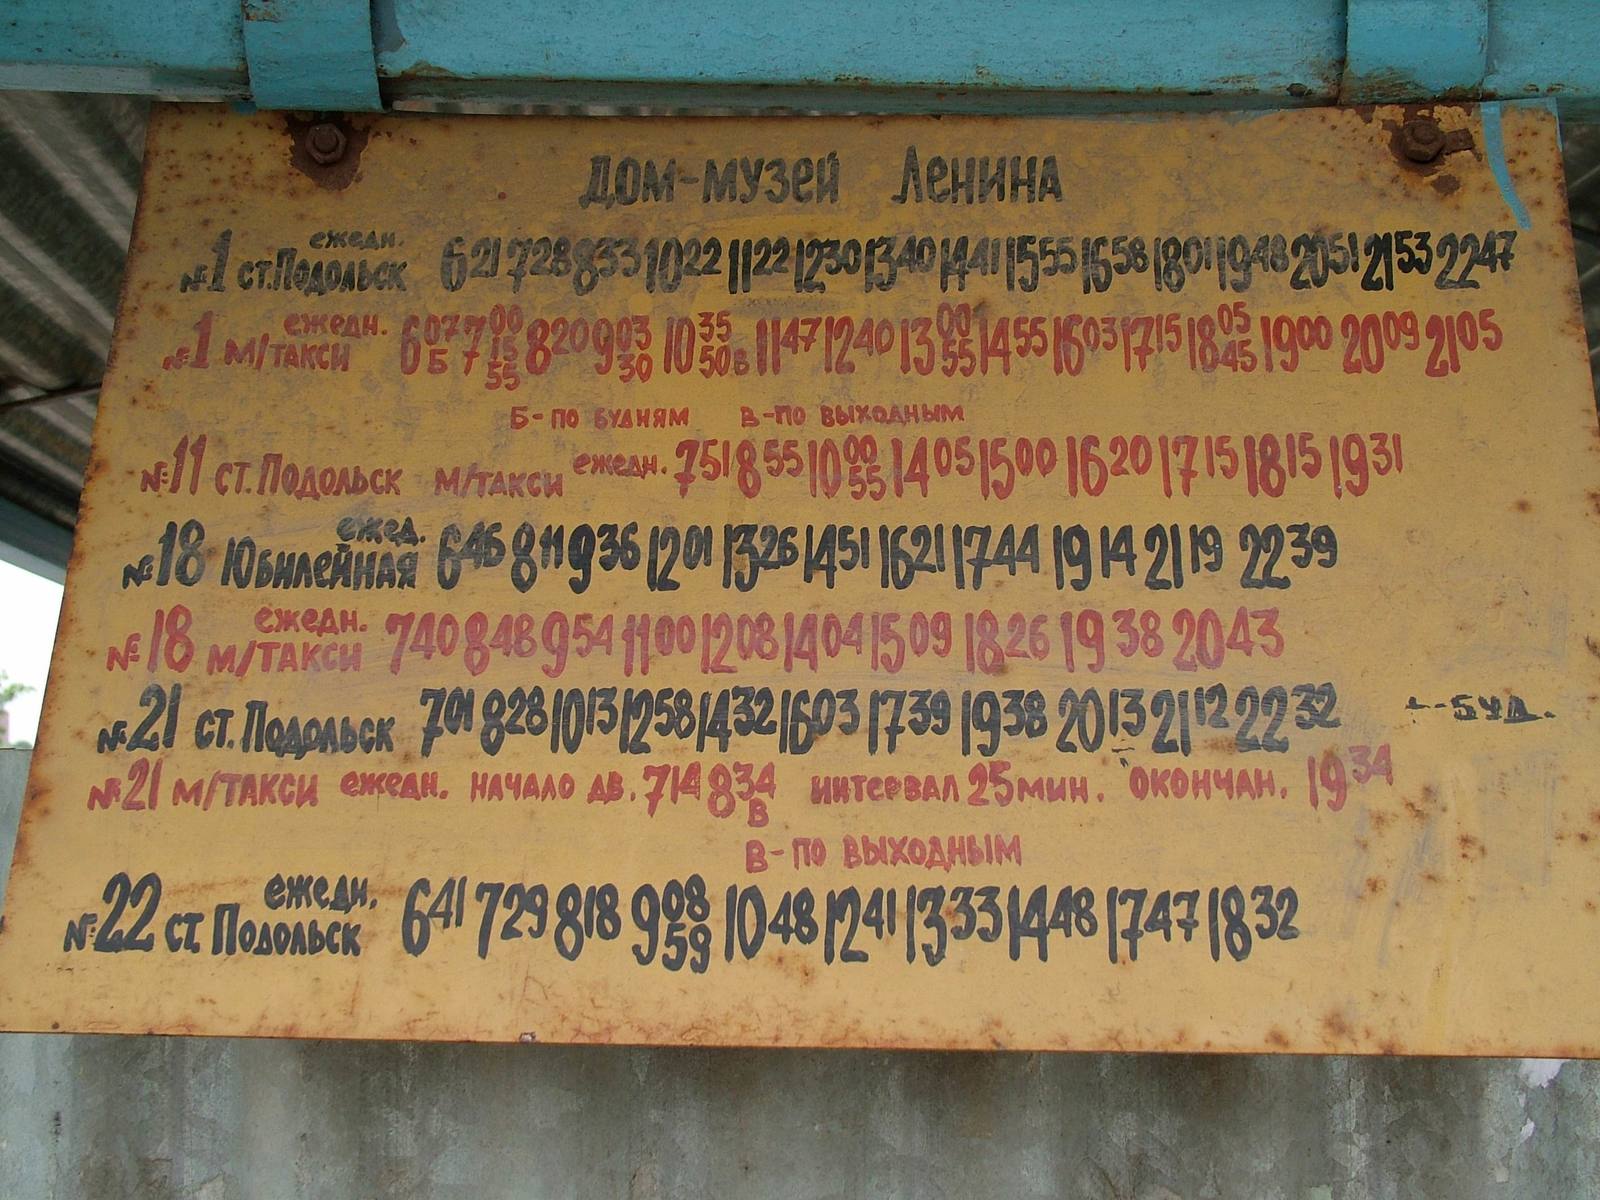 ДОМ-МУЗЕЙ ЛЕНИНА
№1 ст. Подольск ежедн. 6 21 7 28 8 33 10 22 11 22 12 30 13 40 14 41 15 55 16 58 18 01 19 48 20 51 21 53 22 47
№1 м/такси ежедн. 6 07 Б 7 00 15 55 8 20 9 03 30 10 35 50 В 11 47 12 40 13 00 55 14 55 16 03 17 15 18 05 45 19 00 20 09 21 05
Б - по будням В - по выходным
№11 ст. Подольск м/такси ежедн. 7 51 8 55 10 00 55 14 05 15 00 16 20 17 15 18 15 19 31
№18 Юбилейная ежед. 6 46 8 11 9 36 12 01 13 26 14 51 16 21 17 44 19 14 21 19 22 39
№18 м/такси ежедн. 7 40 8 48 9 54 11 00 12 08 14 04 15 09 18 26 19 38 20 43
№21 ст. Подольск 7 01 8 28 10 13 12 58 14 32 16 03 17 39 19 38 20 13 21 12 22 32 - буд.
№21 м/такси ежедн. начало дв. 7 14 8 34 В интервал 25 мин. окончан. 19 34
В - по выходным
№22 ст. Подольск ежедн. 6 41 7 29 8 18 9 08 59 10 48 12 41 13 33 14 48 17 47 18 32